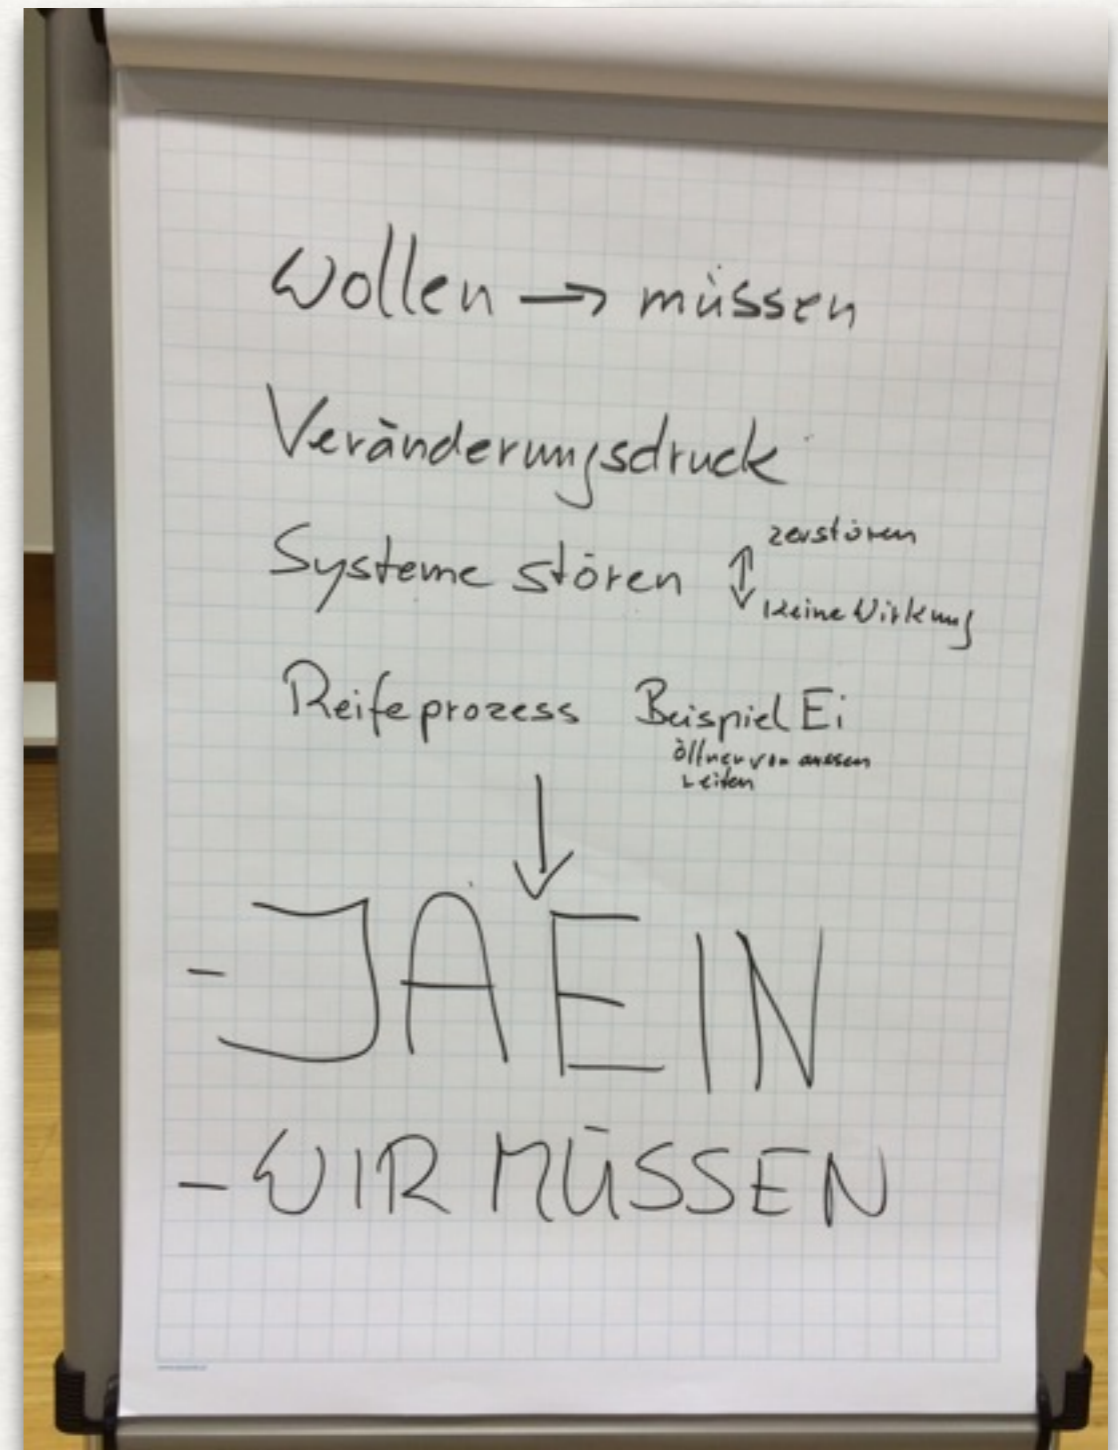 Wollen → müssen
Veränderungsdruck
Systeme stören ↕ zerstören
keine Wirkung
Reifeprozess Beispiel Ei
öffnen von aussen
↓
- JAEIN
- WIR MÜSSEN